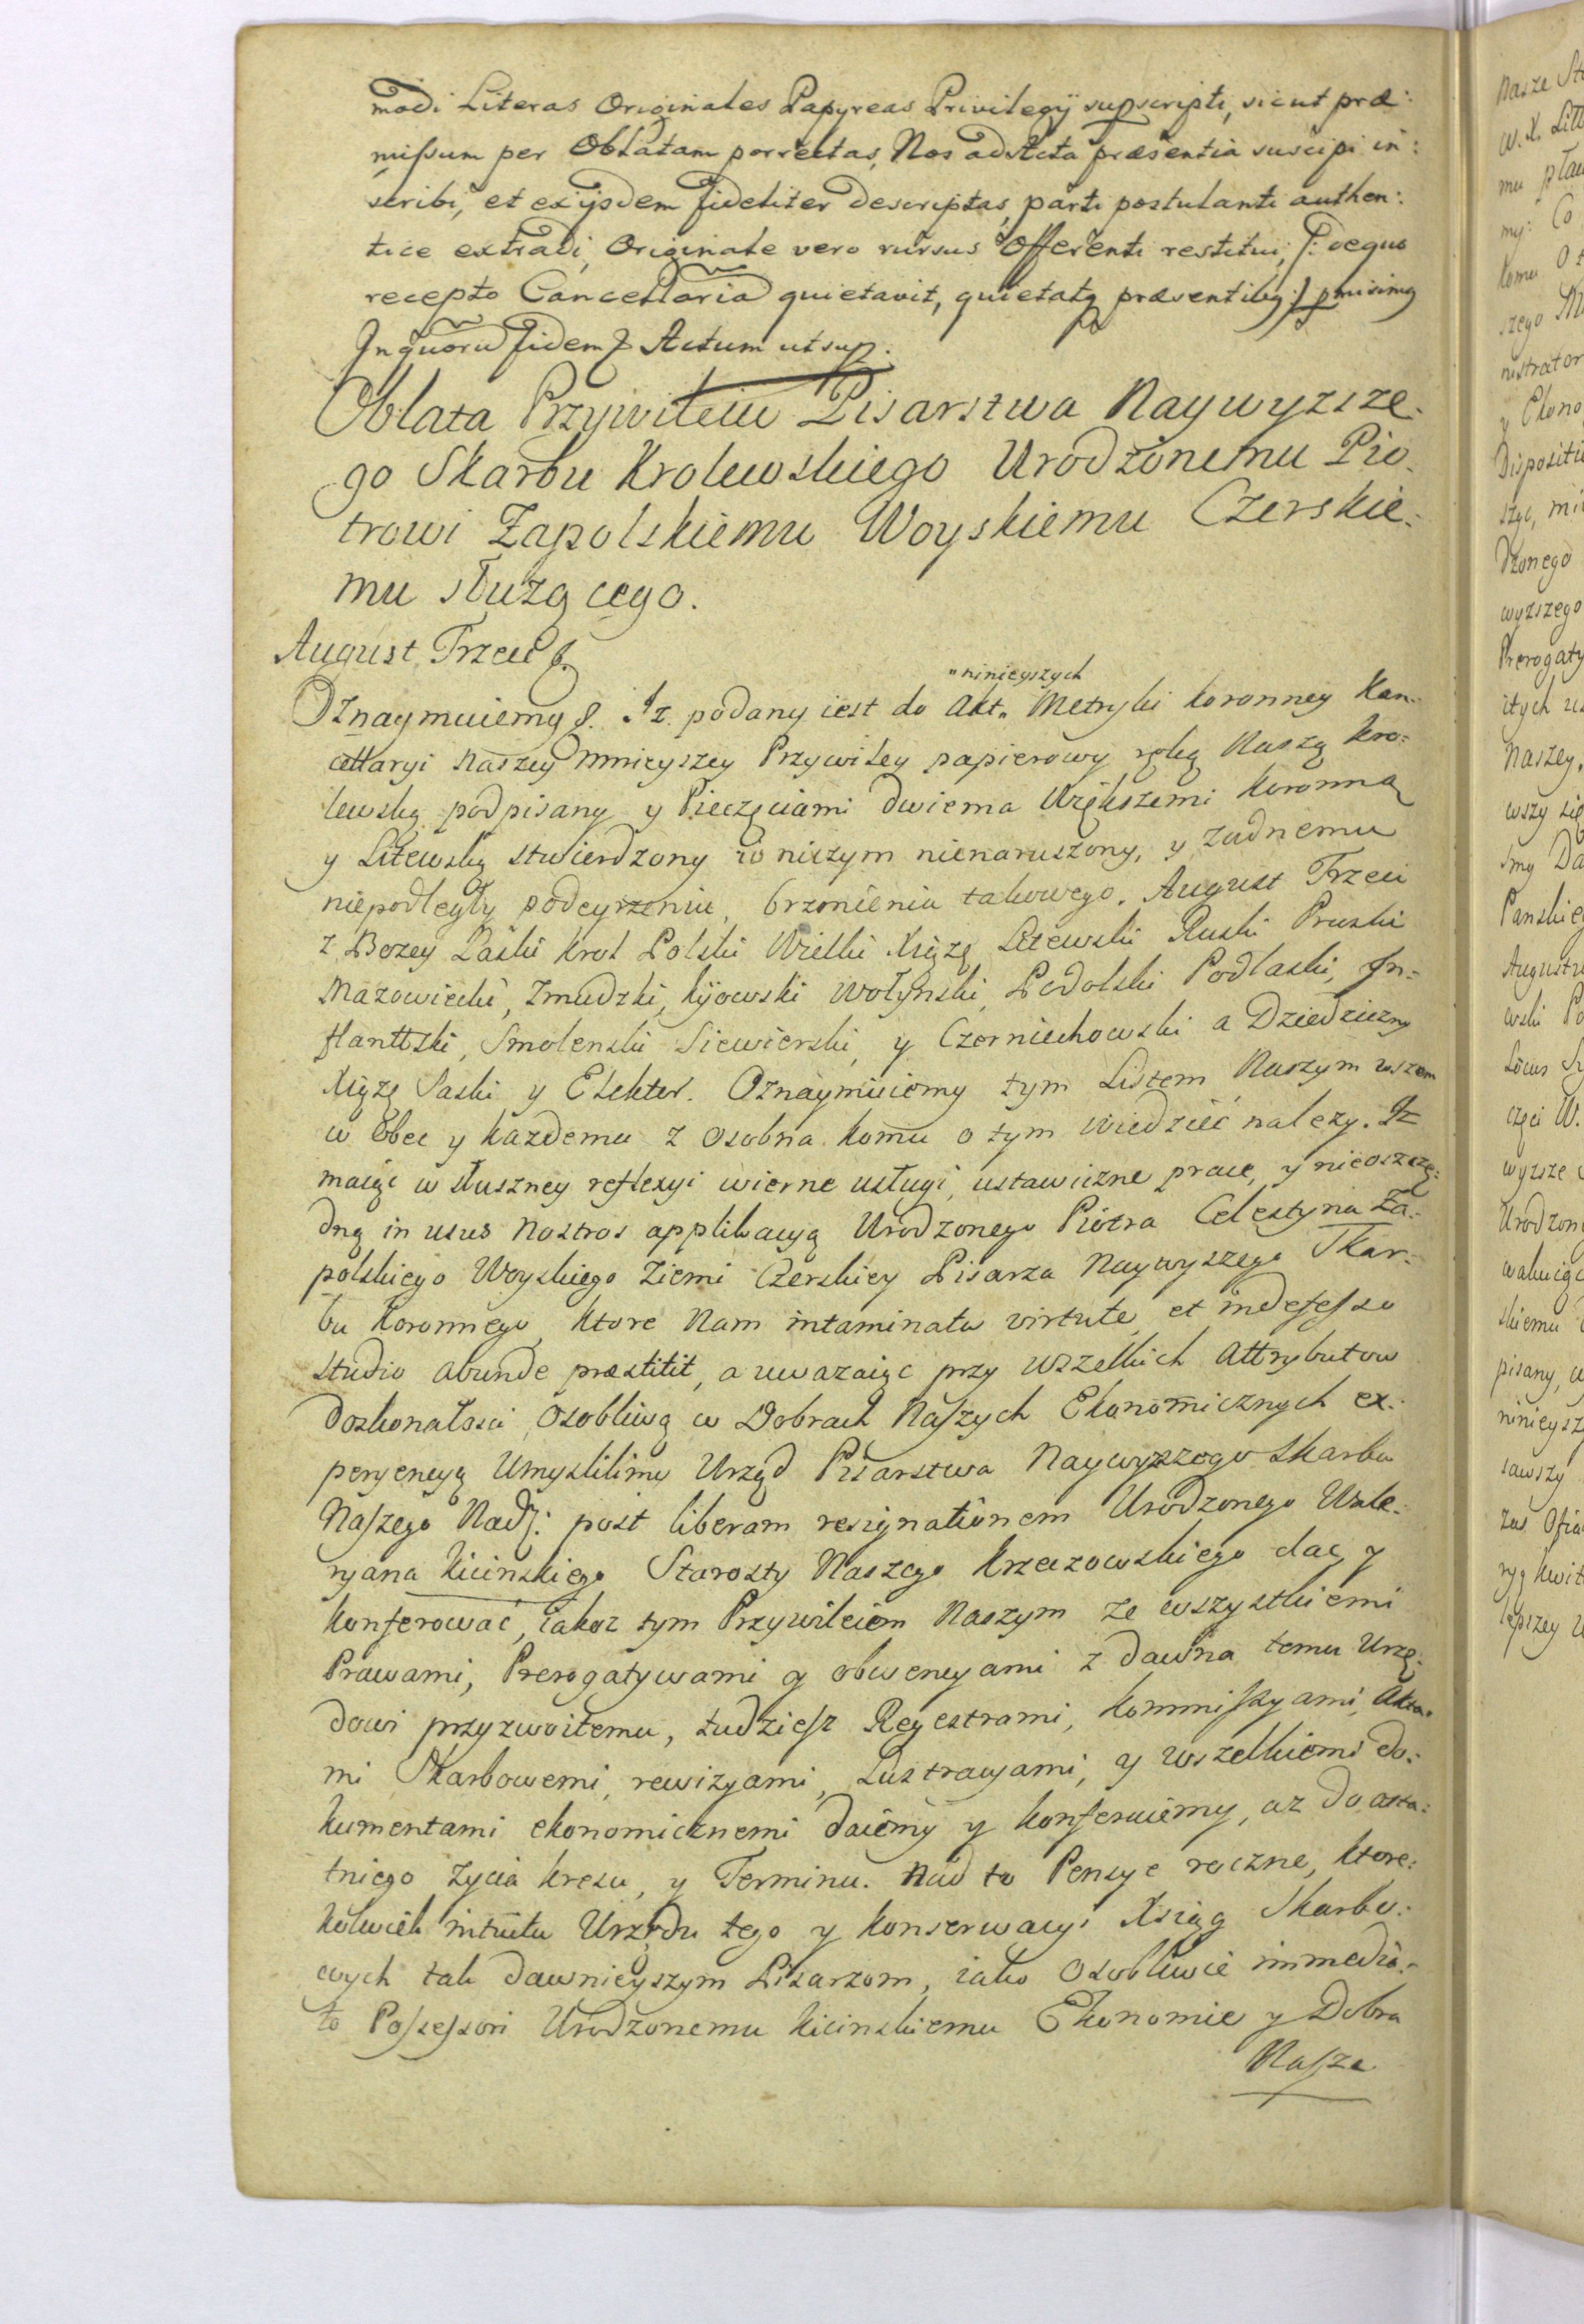 modi Literas Originales Papyreas Privilegÿ supscripti, sicut præ:
missum per Oblatam porrectas, Nos ad Acta præsentia suscipi in:
scribi, et ex ijsdem fideliter descriptas, parti postulanti authen:
tice extradi, Originale vero rursus Offerenti restitui, /: de quo
recepto Cancellaria quietavit, quietatq præsentibq :/ pmisimq
In quoru fidem Actum ut sup.
Oblata Przywileiu Pisarstwa Naywyzsze-
go Skarbu Krolewskiego Urodzonemu Pio-
trowi Zapolskiemu Woyskiemu Czerskie:
mu słuzącego.
August Trzeci
"ninieyszych
Oznaymuiemy Iz podany iest do Akt" Metryki Koronney Kan-
cellaryi Naszey Mnieyszey Przywiley papierowy ręką Naszą Kro:
lewską podpisany y Pieczęciami dwiema Większemi Koronną
y Litewską stwierdzony w niczym nienaruszony, y zadnemu
niepodległy podeyrzeniu, brzmienia takowego. August Trzeci
z Bozey Łaski Krol Polski Wielki Xiązę Litewski Ruski Pruski
Mazowiecki, Zmudzki, Kijowski Wołynski, Podolski Podlaski, In-
flanttski, Smolenski Siewierski, y Czerniechowski a Dziedziczny
Xiązę Saski y Elektor. Oznaymuiemy tym Listem Naszym wszem
w Obec y kazdemu z osobna komu o tym wiedzieć nalezy. Iz
maiąc w słuszney reflexyi wierne usługi, ustawiczne prace, y nieoszczę:
dną in usus Nostros applikacyą Urodzonego Piotra Celestyna Za-
polskiego Woyskiego Ziemi Czerskiey Pisarza Naywyszego Skar-
bu Koronnego, ktore Nam intaminata virtute et indefesso
studio abunde præstitit, a uwazaiąc przy wszelkich Attrybutow
doskonałosci, osobliwą w Dobrach Naszych Ekonomicznych ex-
peryencyą Umyslilimy Urząd Pisarstwa Naywyzszego Skarbu
Naszego Nad: post liberam resignationem Urodzonego Wale-
ryana Kicinskiego Starosty Naszego Krzeczowskiego dac y
konferować, iakoz tym Przywileiem Naszym ze wszystkiemi
Prawami, Prerogatywami y obwencyami z dawna temu Urzę:
dowi przyzwoitemu, tudziesz Regestrami, kommissyami, Akta-
mi Skarbowemi, rewizyami, Lustracyami, y wszelkiemi do:
kumentami ekonomicznemi daiemy y konferuiemy, az do osta:
tniego zycia kresu, y Terminu. Nad to Pensye roczne, ktore:
kolwiek intuitu Urzędu tego y konserwacyi Xsiąg Skarbo:
wych tak dawnieyszym Pisarzom, iako osobliwie immedia:
to Possessori Urodzonemu Kicinskiemu Ekonomie y Dobra
Nasze